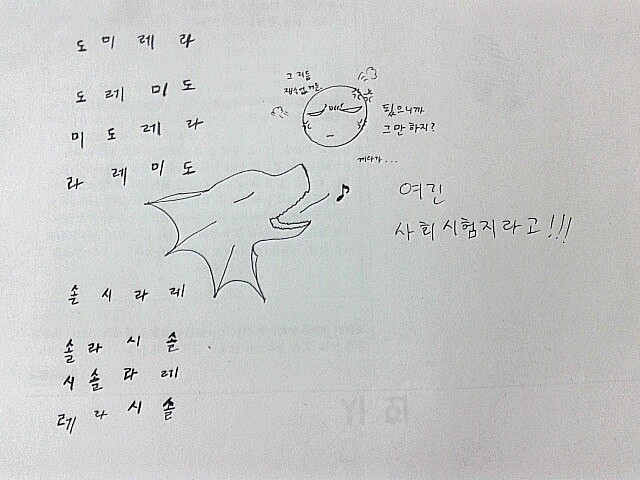 도 미 레 라
도 레 미 도
미 도 레 라
라 레 미 도
솔 시 라 레
솔 라 시 솔
시 솔 라 레
레 라 시 솔
됐으니까
그만하지?
게다가...
여긴
사회시험지라고!!!